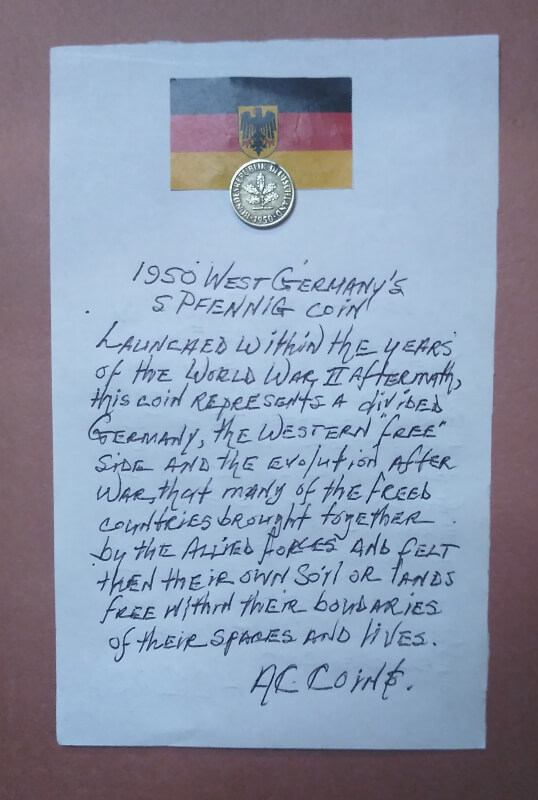 BUNDESREPUBLIK DEUTSCHLAND
1950
1950 WEST GERMANY'S
5 PFENNIG COIN
LAUNCHED WITHIN THE YEARS
OF THE WORLD WAR II AFTERMATH,
THIS COIN REPRESENTS A DIVIDED
GERMANY, THE WESTERN "FREE"
SIDE AND THE EVOLUTION AFTER
WAR, THAT MANY OF THE FREED
COUNTRIES BROUGHT TOGETHER
BY THE ALLIED FORCES AND FELT
THEN THEIR OWN SOIL OR LANDS
FREE WITHIN THEIR BOUDARIES
OF THEIR SPACES AND LIVES.
A.C. COINS.